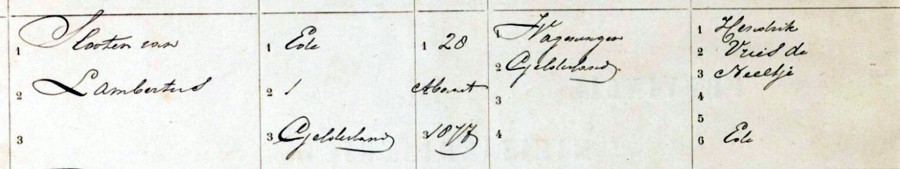 1 Slooten van
2 Lambertus
3
1 Ede
2 1
3 Gelderland
1 28
Maart
3 1877
1 Wageningen
2 Gelderland
3
4
1 Hendrik
2 Vries de
3 Neeltje
4
5
6 Ede